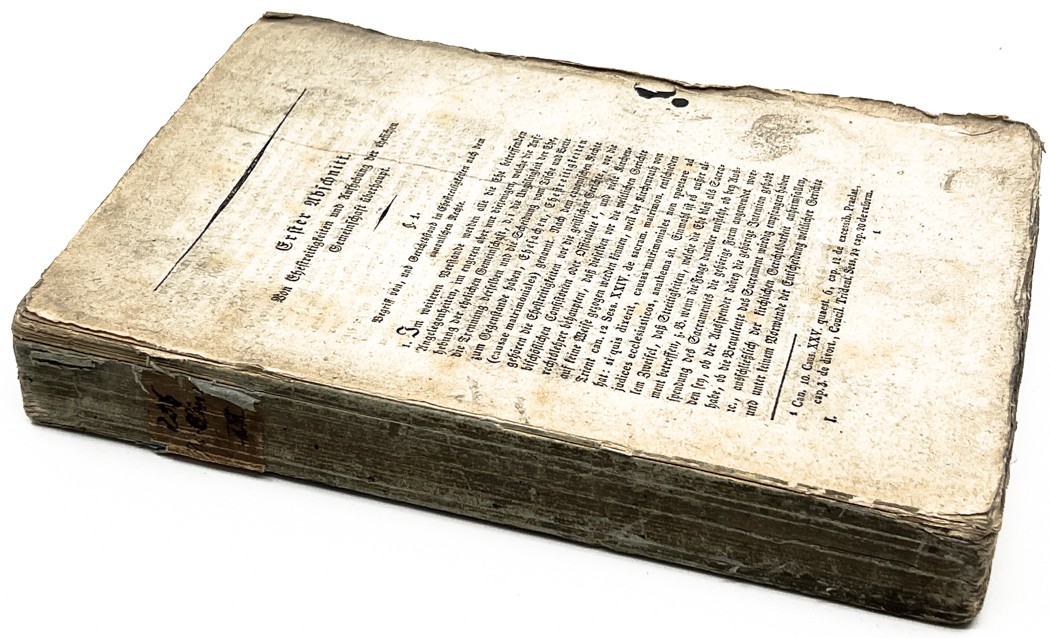 Erster Abschnitt.
Von Ehestreitigkeiten und Aufhebung der ehelichen
Gemeinschaft überhaupt.
§. 1.
Begriff von, und Gerichtsstand in Ehestreitigkeiten nach dem
canonischen Rechte.
1. Im weitern Verstande werden alle die Ehe betreffenden
Angelegenheiten, im engern aber nur diejenigen, welche die Auf-
hebung der ehelichen Gemeinschaft, d. i. die Ungültigkeit der Ehe,
die Trennung derselben und die Scheidung von Tische und Bette
zum Gegenstande haben, Ehesachen, Ehestreitigkeiten
(causae matrimoniales) genannt. Nach dem canonischen Rechte
gehören die Ehestreitigkeiten vor die geistlichen Gerichte, vor die
bischöflichen Consistorien oder Officialate ¹, und viele Kirchen-
rechtslehrer behaupten, daß dieselben vor die weltlichen Gerichte
auf keine Weise gezogen werden können, weil der Kirchenrath von
Trient can. 12 Sess. XXIV. de sacram. matrimon. entschieden
hat: si quis dixerit, causas matrimoniales non spectare ad
judices ecclesiasticos, anathema sit. Einmahl ist es außer al-
lem Zweifel, daß Streitigkeiten, welche die Ehe bloß als Sacra-
ment betreffen, z. B. wenn die Frage darüber entsteht, ob bey Aus-
spendung des Sacraments die gehörige Form angewendet wor-
den sey, ob die Ausspender dabey die gehörige Intention gehabt
habe, ob die Brautleute das Sacrament würdig empfangen haben
ꝛc., ausschließlich der kirchlichen Gerichtsbarkeit anheimfallen,
und unter keinem Vorwand der Entscheidung weltlicher Gerichte
¹ Can. 10. Can. XXXV. quaest 6, cap. 12 de excessib. Praelat.
cap. 3. de divort., Concil. Trident. Sess. 24 cap. 20 de reform.
I. 1